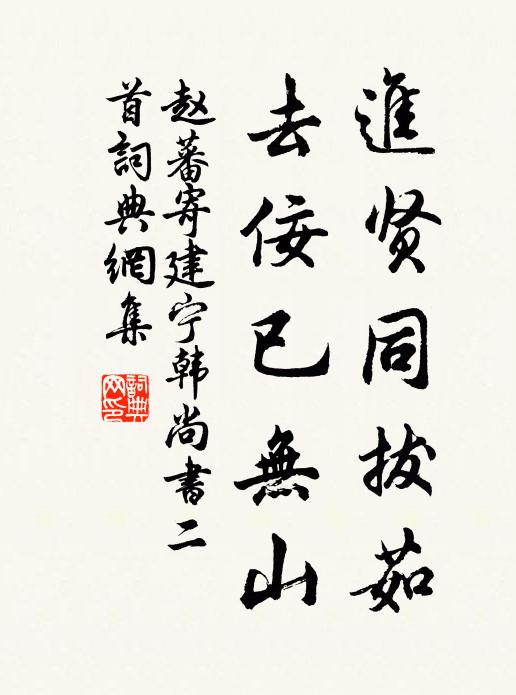 進贤同拔茹
去佞已無山
赵蕃寄建宁韩尚書二
首詞典網集
詞典
网印